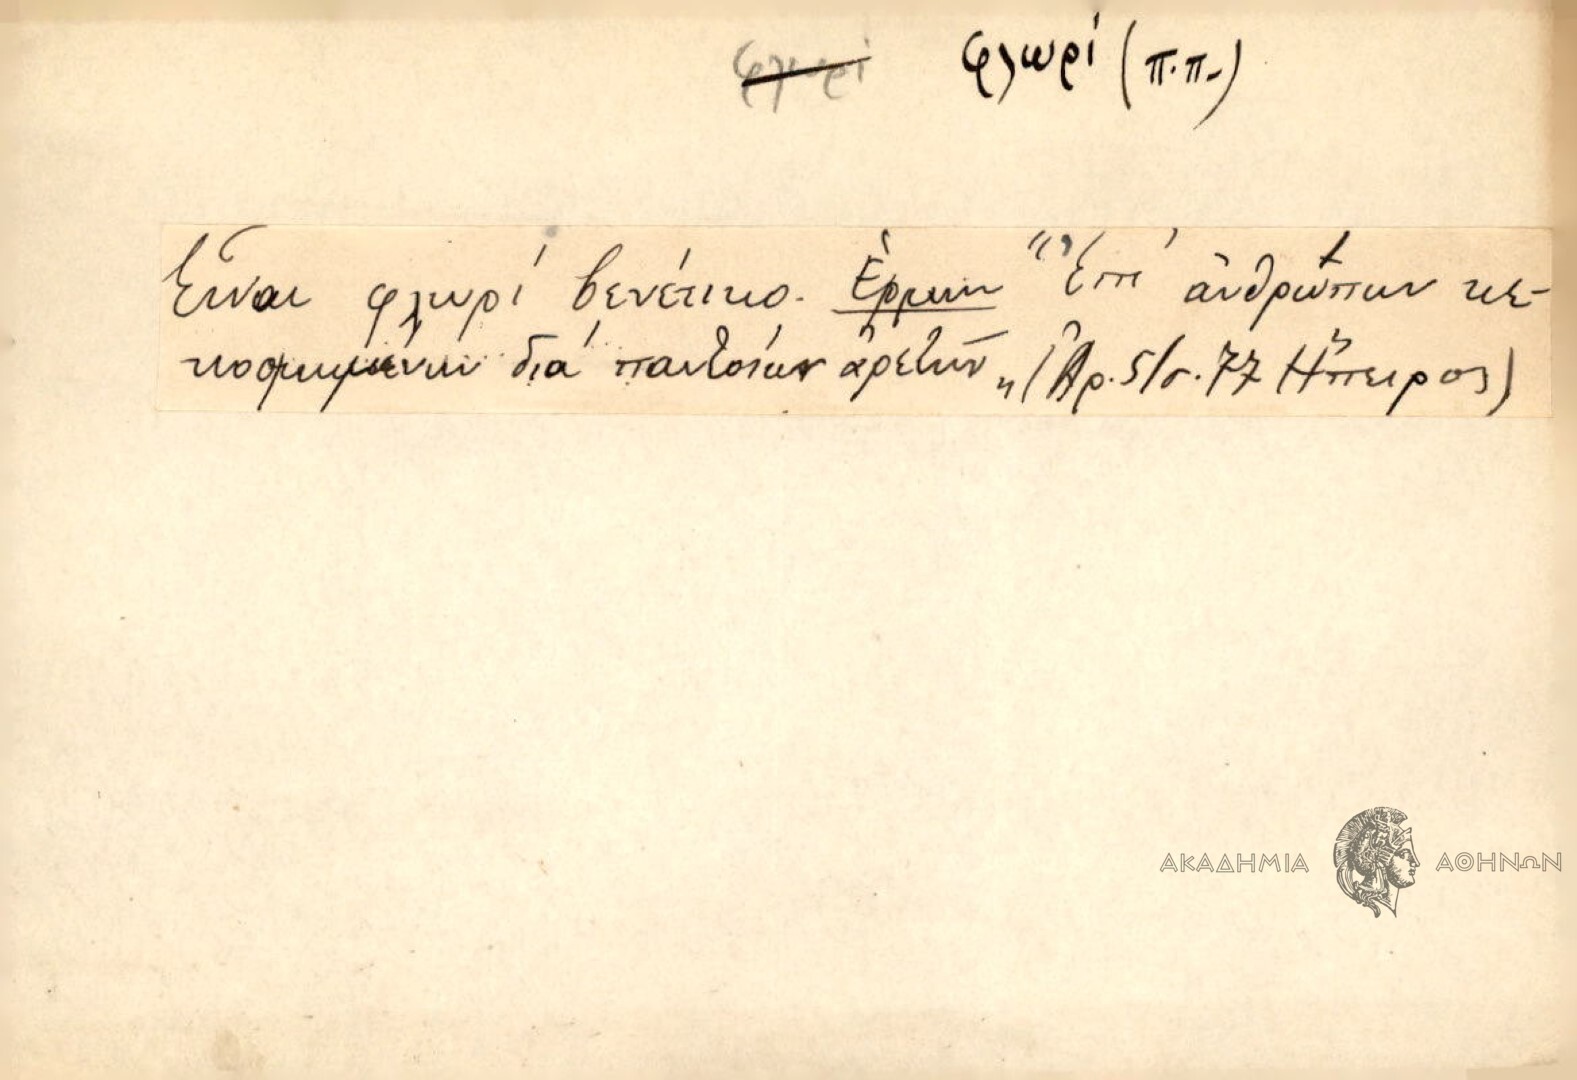 φλωρί φλωρί (π.π.)
Εἶναι φλωρί βενέτικο. Ἑρμην "Ἐπί ἀνθρώπων κε-
κοσμημένων διά παντοίων ἀρετῶν" (Ἀρ. 5/σ. 77 Ἤπειρος)
ΑΚΑΔΗΜΙΑ ΑΘΗΝΩΝ